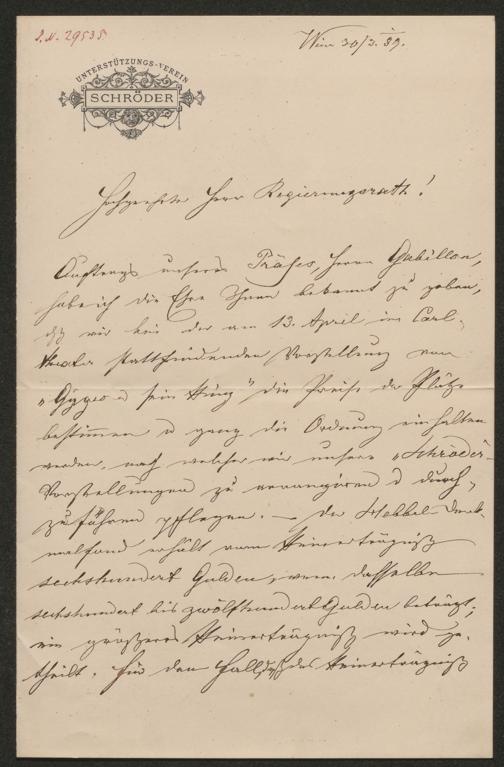 I.N. 29535
Wien 30/3. 89.
UNTERSTÜTZUNGS-VEREIN
SCHRÖDER
Hochgeehrter Herr Regierungsrath!
Auftrags unseres Präses, Herrn Gabillon,
habe ich die Ehre Ihnen bekannt zu geben,
daß wir bei der am 13. April im Carl-
theater stattfindenden Vorstellung von
"Gyges u sein Ring" die Preise der Plätze
bestimmen u ganz die Ordnung einhalten
werden, nach welcher wir unsere "Schröder"-
Vorstellungen zu arrangiren u durch-
zuführen pflegen. — Der Hebbel-Denk-
malfond erhält vom Reinerträgniß
sechshundert Gulden, wenn dasselbe
sechshundert bis zwölfhundert Gulden beträgt;
ein größeres Reinerträgniß wird ge-
theilt. Für den Fall, daß das Reinerträgniß